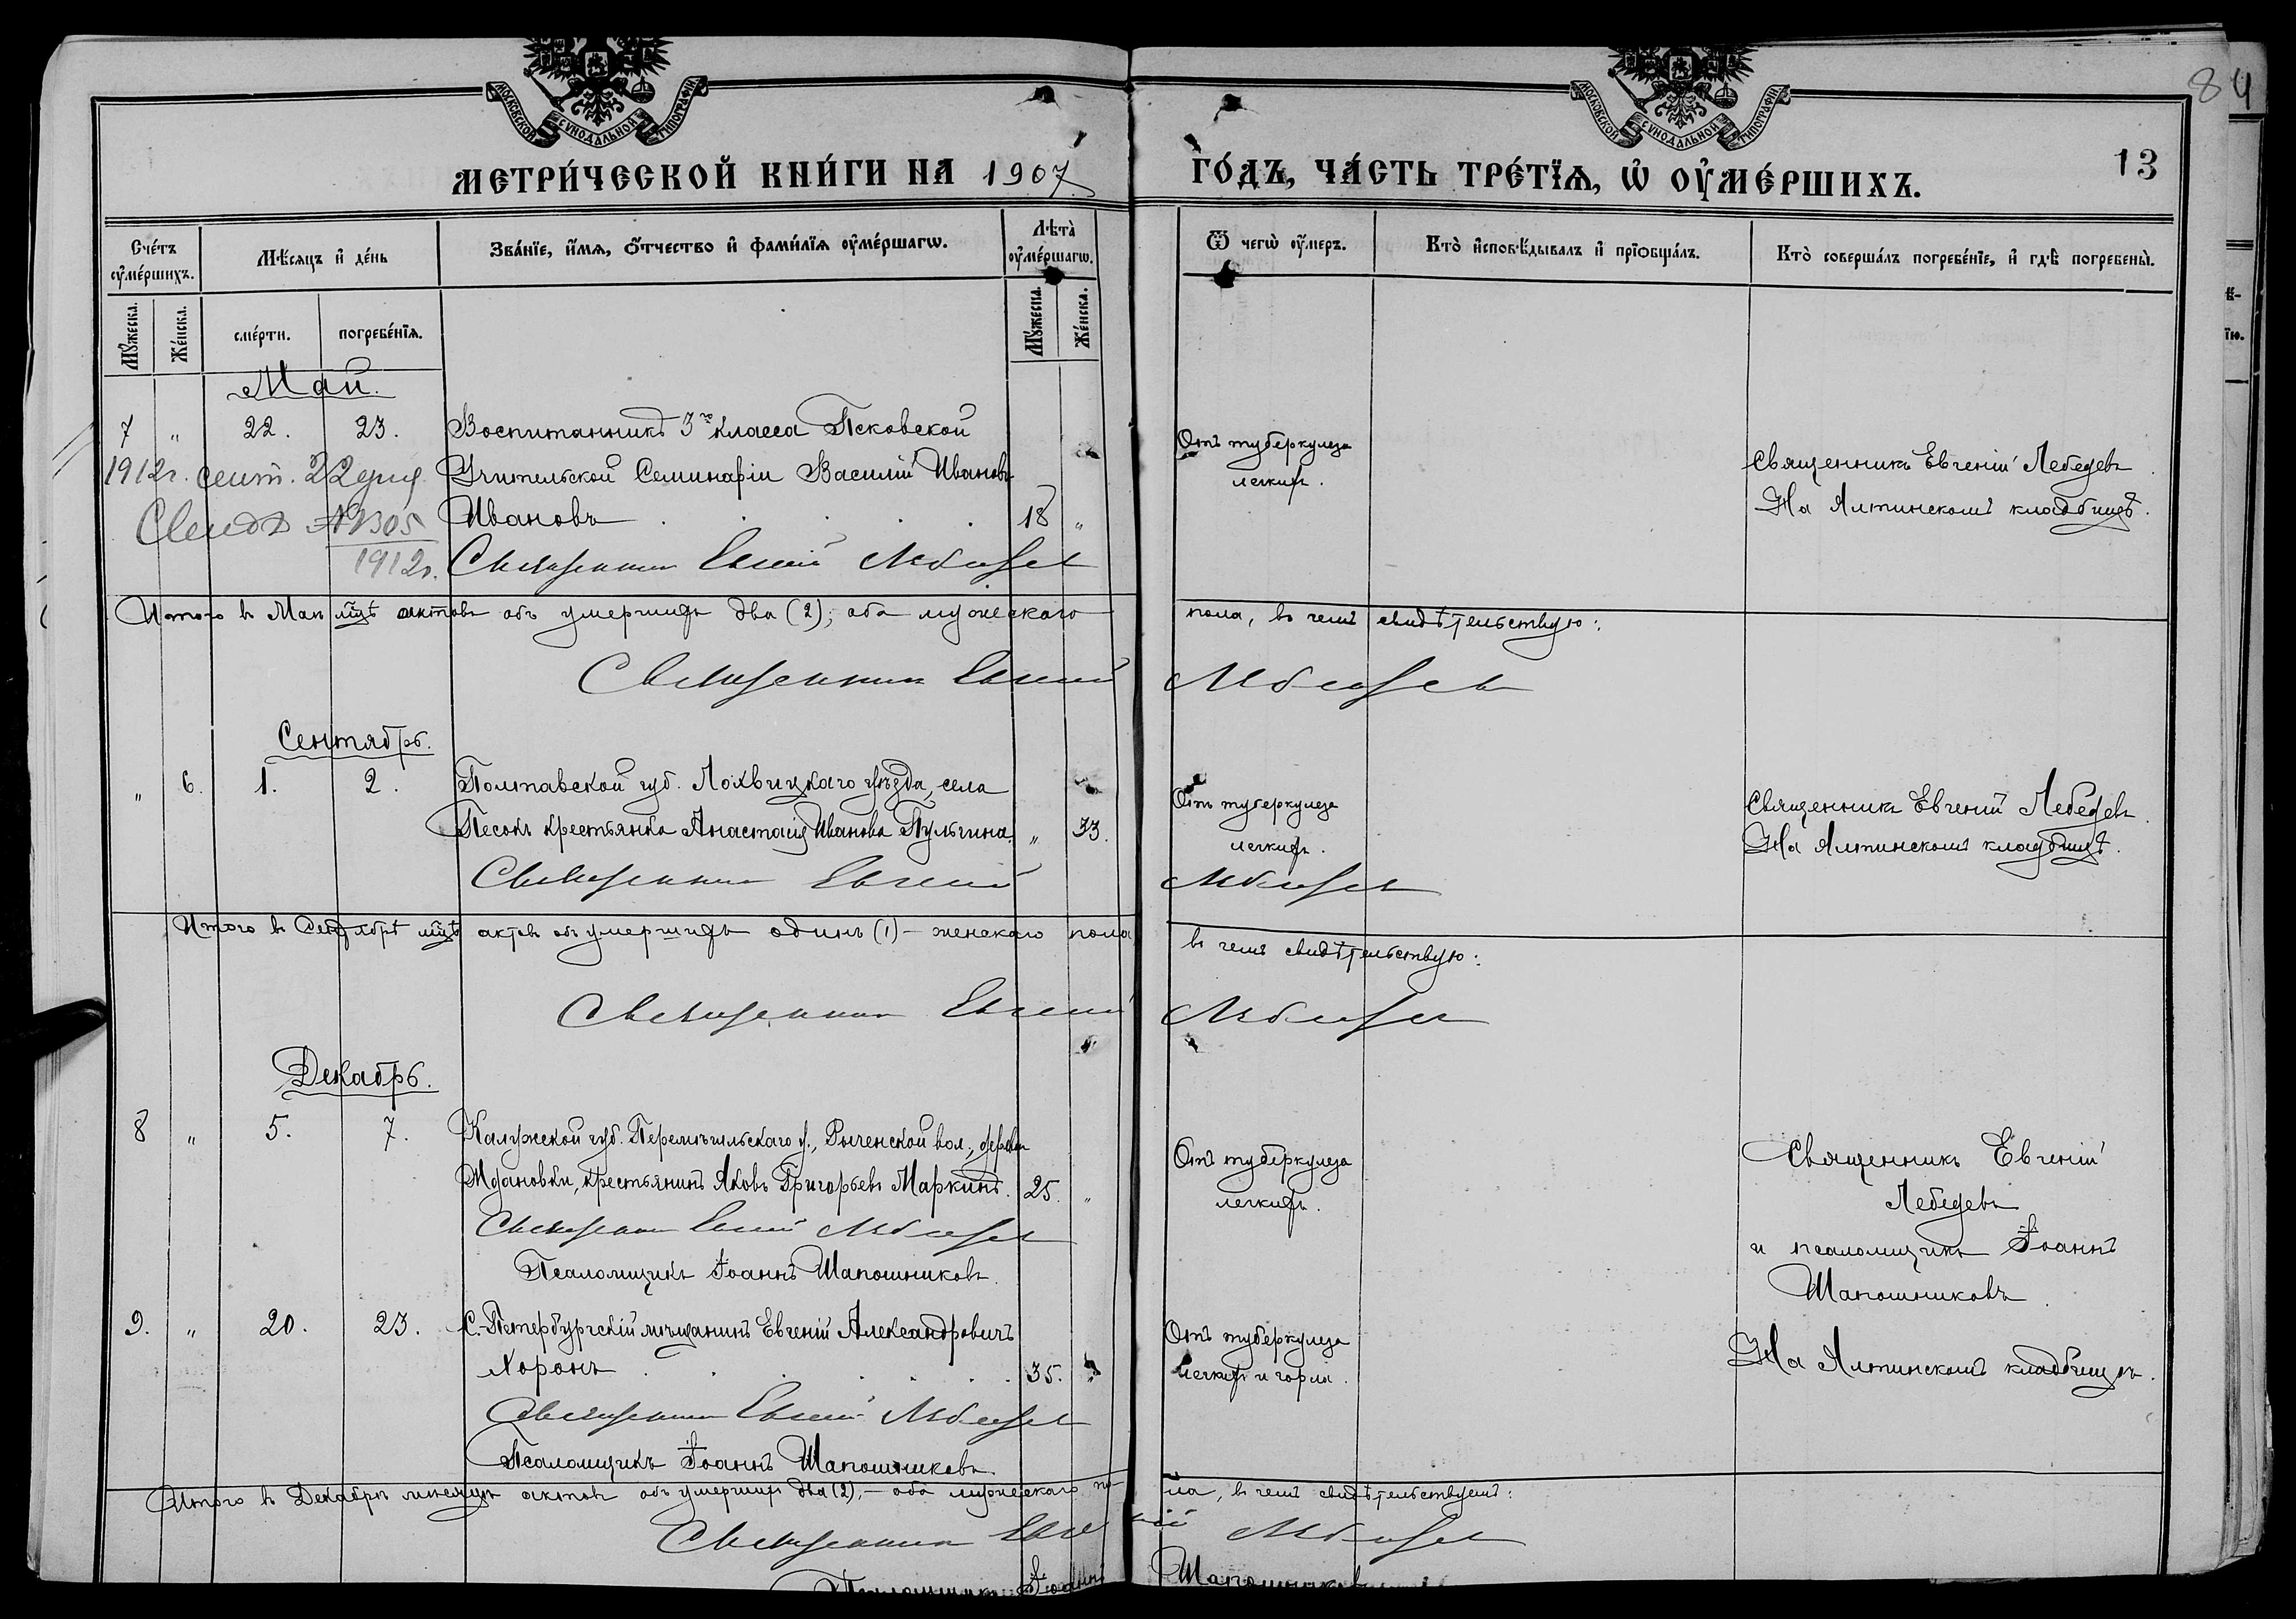 84
МОСКОВСКОЙ СѴНОДАЛЬНОЙ ТИПОГРАФІИ
МОСКОВСКОЙ СѴНОДАЛЬНОЙ ТИПОГРАФІИ
МЕТРИ́ЧЕСКОЙ КНИ́ГИ НА 1907 ГО́ДЪ, ЧА́СТЬ ТРЕ́ТЇѦ, Ѡ҆ ОУ҆МЕ́РШИХЪ.
13
Сче́тъ оу҆ме́ршихъ.
Мѣ́сяцъ и҆ де́нь
Зва́нїе, и҆́мѧ, ѻ҆́тчество и҆ фами́лїѧ оу҆ме́ршагѡ.
Лѣ́та оу҆ме́ршагѡ.
Ѿ чегѡ̀ оу҆́меръ.
Кто̀ и҆сповѣ́дывалъ и҆ прїѻбща́лъ.
Кто̀ соверша́лъ погребе́нїе, и҆ гдѣ̀ погребены̀.
Мꙋ́жеска.
Же́нска.
сме́рти.
погребе́нїѧ.
Мꙋ́жеска.
Же́нска.
Май.
7 " 22. 23. Воспитанникъ 3го класса Псковской
1912г. сент. 22 дня Учительской Семинаріи Василій Ивановъ
Свид. № 1305 Ивановъ 18 "
1912г. Священникъ Евгеній Лебедевъ
Отъ туберкулеза
легкихъ.
Священникъ Евгеній Лебедевъ.
На Ялтинскомъ кладбищѣ.
Итого въ Маѣ мцѣ актовъ объ умершихъ два (2); оба мужескаго пола, въ чемъ свидѣтельствую:
Священникъ Евгеній Лебедевъ
Сентябрь.
" 6. 1. 2. Полтавской губ. Лохвицкаго уѣзда, села
Песокъ крестьянка Анастасія Иванова Пульгина. " 33.
Священникъ Евгеній Лебедевъ
Отъ туберкулеза
легкихъ.
Священникъ Евгеній Лебедевъ.
На Ялтинскомъ кладбищѣ.
Итого въ Сентябрѣ мцѣ актовъ объ умершихъ одинъ (1) – женскаго пола въ чемъ свидѣтельствую:
Священникъ Евгеній Лебедевъ
Декабрь.
8 " 5. 7. Калужской губ. Перемышльскаго у., вол., деревни
крестьянинъ Яковъ Григорьевъ Маркинъ. 25. "
Священникъ Евгеній Лебедевъ
Псаломщикъ Іоаннъ Шапошниковъ.
Отъ туберкулеза
легкихъ.
Священникъ Евгеній
Лебедевъ
и псаломщикъ Іоаннъ
Шапошниковъ.
9. " 20. 23. С.-Петербургскій мѣщанинъ Евгеній Александровичъ
Хоронъ 35. "
Священникъ Евгеній Лебедевъ
Псаломщикъ Іоаннъ Шапошниковъ.
Отъ туберкулеза
легкихъ и горла.
На Ялтинскомъ кладбищѣ.
Итого въ Декабрѣ мѣсяцѣ актовъ объ умершихъ два (2), – оба мужескаго пола, въ чемъ свидѣтельствуемъ:
Священникъ Евгеній Лебедевъ
Псаломщикъ Іоаннъ Шапошниковъ